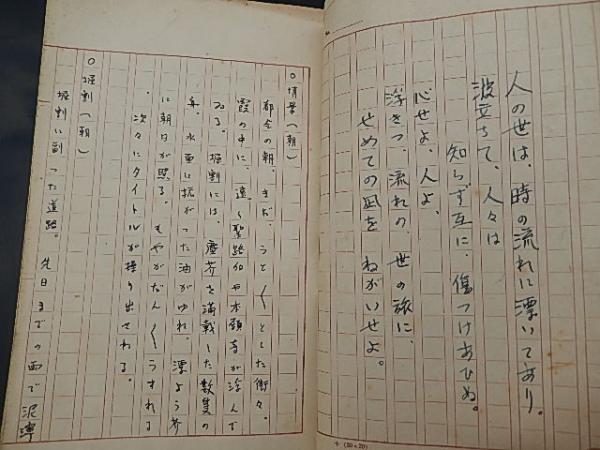 人の世は、時の流れに漂いてあり。
波立ちて、人々は
知らず互に、傷つけあひぬ。
心せよ、人よ、
浮きつ、流れの、世の旅に、
せめての凪を ねがいせよ。
○情景(朝)
都会の朝。まだ、うと〱とした街々。
霞の中に、遠く聖路加や本願寺が浮んで
ゐる。堀割には、塵芥を満載した数隻の
舟。水面に拡がった油がゆれ、漂よう芥
に朝日が照る。もやがだん〱うすれる
、次々にタイトルが擡り出てわる。
○堀割(朝)
堀割に副った道路。先日までの雨で泥濘
(20×20)